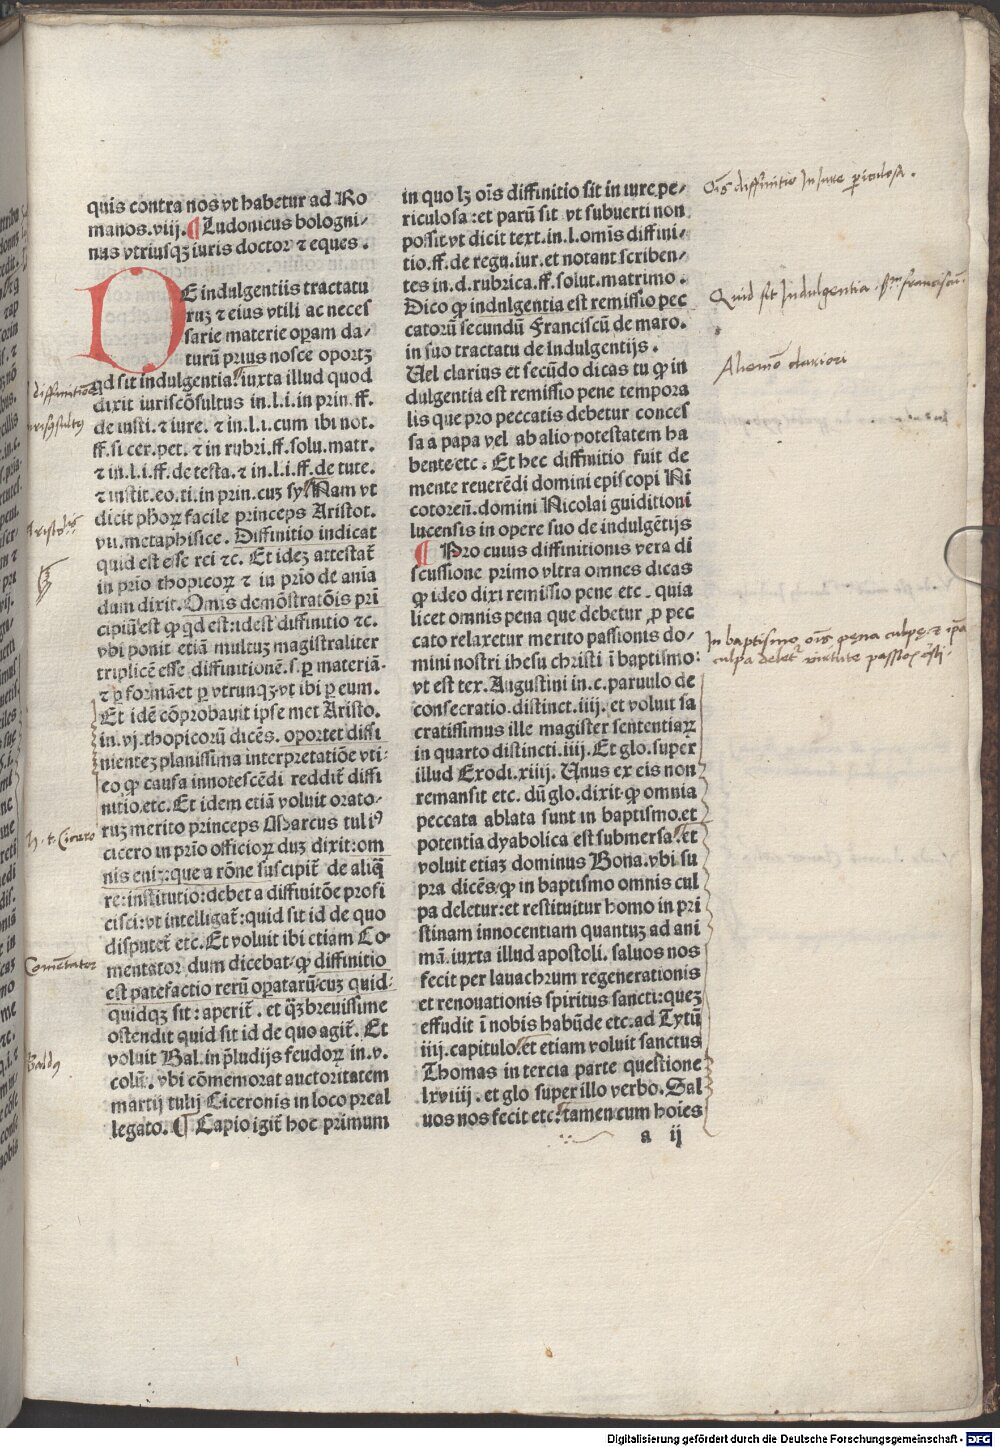 quis contra nos vt habetur ad Ro
manos.viij.¶Ludouicus bologni⸗
nus vtriusqꝫ iuris doctor ⁊ eques.
DE indulgentiis tractatu
ruꝫ ⁊ eius vtili ac neces
sarie materie oꝑam da⸗
turū prius nosce oportꝫ
qd sit indulgentia:iuxta illud quod
dixit iuriscōsultus in.l.i.in prin.ff.
de iusti.⁊ iure.⁊ in.l.i.cum ibi not.
ff.si cer.pet.⁊ in rubri.ff.solu.matr.
⁊ in.l.i.ff.de testa.⁊ in.l.i.ff.de tute.
⁊ instit.eo.ti.in prin.cuꝫ sy.Nam vt
dicit phoꝝ facile princeps Aristot.
vii.metaphisice. Diffinitio indicat
quid est esse rei ⁊c. Et ideꝫ attestat̄
in prīo thopicoꝝ ⁊ in prīo de anīa
dum dixit.Omis demōstratōis pri
cipiū est ꝙ qd est:idest diffinitio ⁊c.
vbi ponit etiā multuꝫ magistraliter
triplicē esse diffinitionē.s.ꝑ materiā⸗
⁊ ꝑ formā et ꝑ vtrunqꝫ vt ibi ꝑ eum.
Et idē cōprobauit ipse met Aristo.
in.vj.thopicorū dicēs.oportet diffi
nienteꝫ planissima interpretatiōe vti⸗
eo ꝙ causa innotescēdi reddit̄ diffi
nitio etc.Et idem etiā voluit orato⸗
ruꝫ merito princeps Marcus tuliꝰ
cicero in prīo officioꝝ duꝫ dixit:om
nis eniꝫ:que a rōne suscipit̄ de aliq̄
re:institutio:debet a diffinitōe profi
cisci:vt intelligat̄:quid sit id de quo
disputet̄ etc.Et voluit ibi etiam Co⸗
mentator dum dicebat ꝙ diffinitio
est patefactio rerū oꝑatarū cuꝫ quid⸗
quidqꝫ sit:aperit̄.et q̄ꝫ breuissime
ostendit quid sit id de quo agit̄. Et
voluit Bal.in p̄ludijs feudoꝝ in.v.
colū.vbi cōmemorat auctoritatem
martij tulij Ciceronis in loco preal
legato.¶ Capio igit̄ hoc primum
in quo lꝫ oīs diffinitio sit in iure pe⸗
riculosa:et parū sit vt subuerti non
possit vt dicit text.in.l.omīs diffini⸗
tio.ff.de regu.iur.et notant scriben⸗
tes in.d.rubrica.ff.solut.matrimo.
Dico ꝙ indulgentia est remissio pec
catorū secundū Franciscū de maro.
in suo tractatu de Indulgentijs.
Uel clarius et secūdo dicas tu ꝙ in
dulgentia est remissio pene tempora
lis que pro peccatis debetur conces
sa a papa vel ab alio potestatem ha
bente etc. Et hec diffinitio fuit de
mente reuerēdi domini episcopi Ni
cotoreñ.domini Nicolai guiditioni
lucensis in opere suo de indulgētijs
¶ Pro cuius diffinitionis vera di
scussione primo vltra omnes dicas
ꝙ ideo dixi remissio pene etc. quia
licet omnis pena que debetur ꝓ pec
cato relaxetur merito passionis do⸗
mini nostri ihesu christi ī baptismo:
vt est tex.Augustini in.c.paruulo de
consecratio.distinct.iiij.et voluit sa
cratissimus ille magister sententiaꝝ
in quarto distincti.iiij.Et glo.super
illud Exodi.xiiij. Unus ex eis non
remansit etc. dū glo.dixit ꝙ omnia
peccata ablata sunt in baptismo.et
potentia dyabolica est submersa.et
voluit etiaꝫ dominus Bona.vbi su
pra dicēs ꝙ in baptismo omnis cul
pa deletur:et restituitur homo in pri
stinam innocentiam quantuꝫ ad ani
mā.iuxta illud apostoli.saluos nos
fecit per lauachrum regenerationis
et renouationis spiritus sancti:queꝫ
effudit ī nobis habūde etc.ad Tytū
iiij.capitulo.et etiam voluit sanctus
Thomas in tercia parte questione
lxviiij.et glo super illo verbo.Sal
uos nos fecit etc.tamen cum hoīes
a ij
Oīs diffinitio In Iure periculosa.
Quid sit Indulgentia.
In baptismo oīs pena culpe ⁊ ipa
culpa delet̄ virtute passiōis
diffinitio
Cicero
Comētator
Baldꝰ
Digitalisierung gefördert durch die Deutsche Forschungsgemeinschaft - DFG